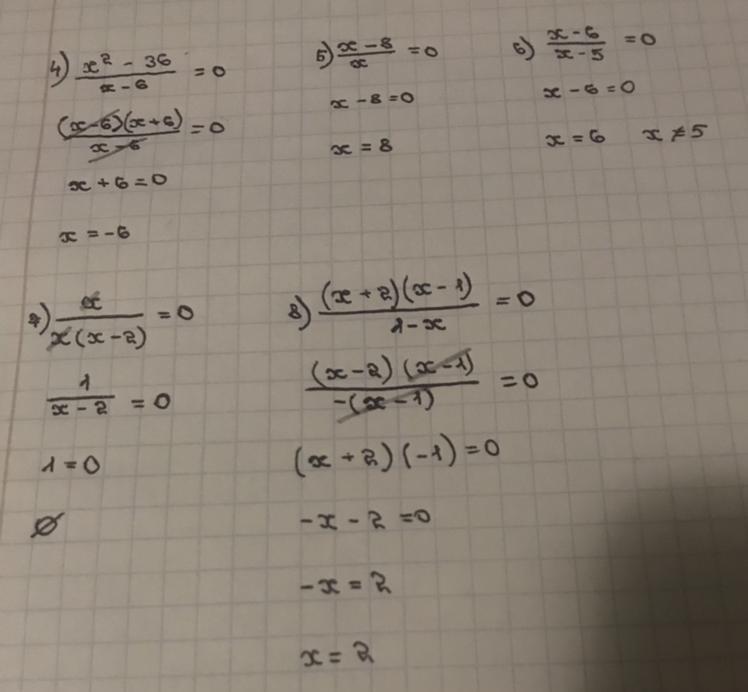 4) (x² - 36)/(x - 6) = 0
((x-6)(x+6))/(x-6) = 0
x + 6 = 0
x = -6
5) (x - 8)/x = 0
x - 8 = 0
x = 8
6) (x - 6)/(x - 5) = 0
x - 6 = 0
x = 6 x ≠ 5
7) x/(x(x-2)) = 0
1/(x - 2) = 0
1 = 0
∅
8) ((x + 2)(x - 1))/(1 - x) = 0
((x - 2)(x - 1))/(-(x - 1)) = 0
(x + 2)(-1) = 0
-x - 2 = 0
-x = 2
x = 2